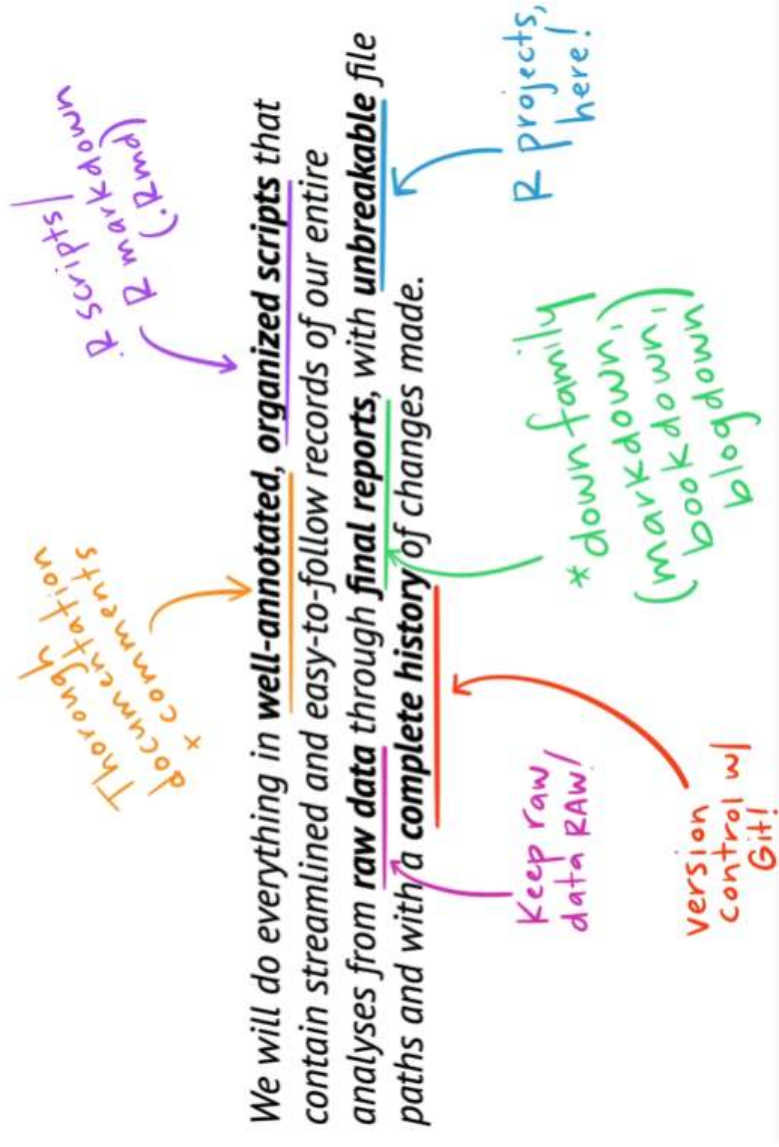 Thorough
documentation
+ comments
R scripts/
R markdown
(.Rmd)
We will do everything in well-annotated, organized scripts that
contain streamlined and easy-to-follow records of our entire
analyses from raw data through final reports, with unbreakable file
paths and with a complete history of changes made.
Keep raw
data RAW!
version
control w/
Git!
*down family
(markdown,
bookdown,
blogdown)
R projects,
here!